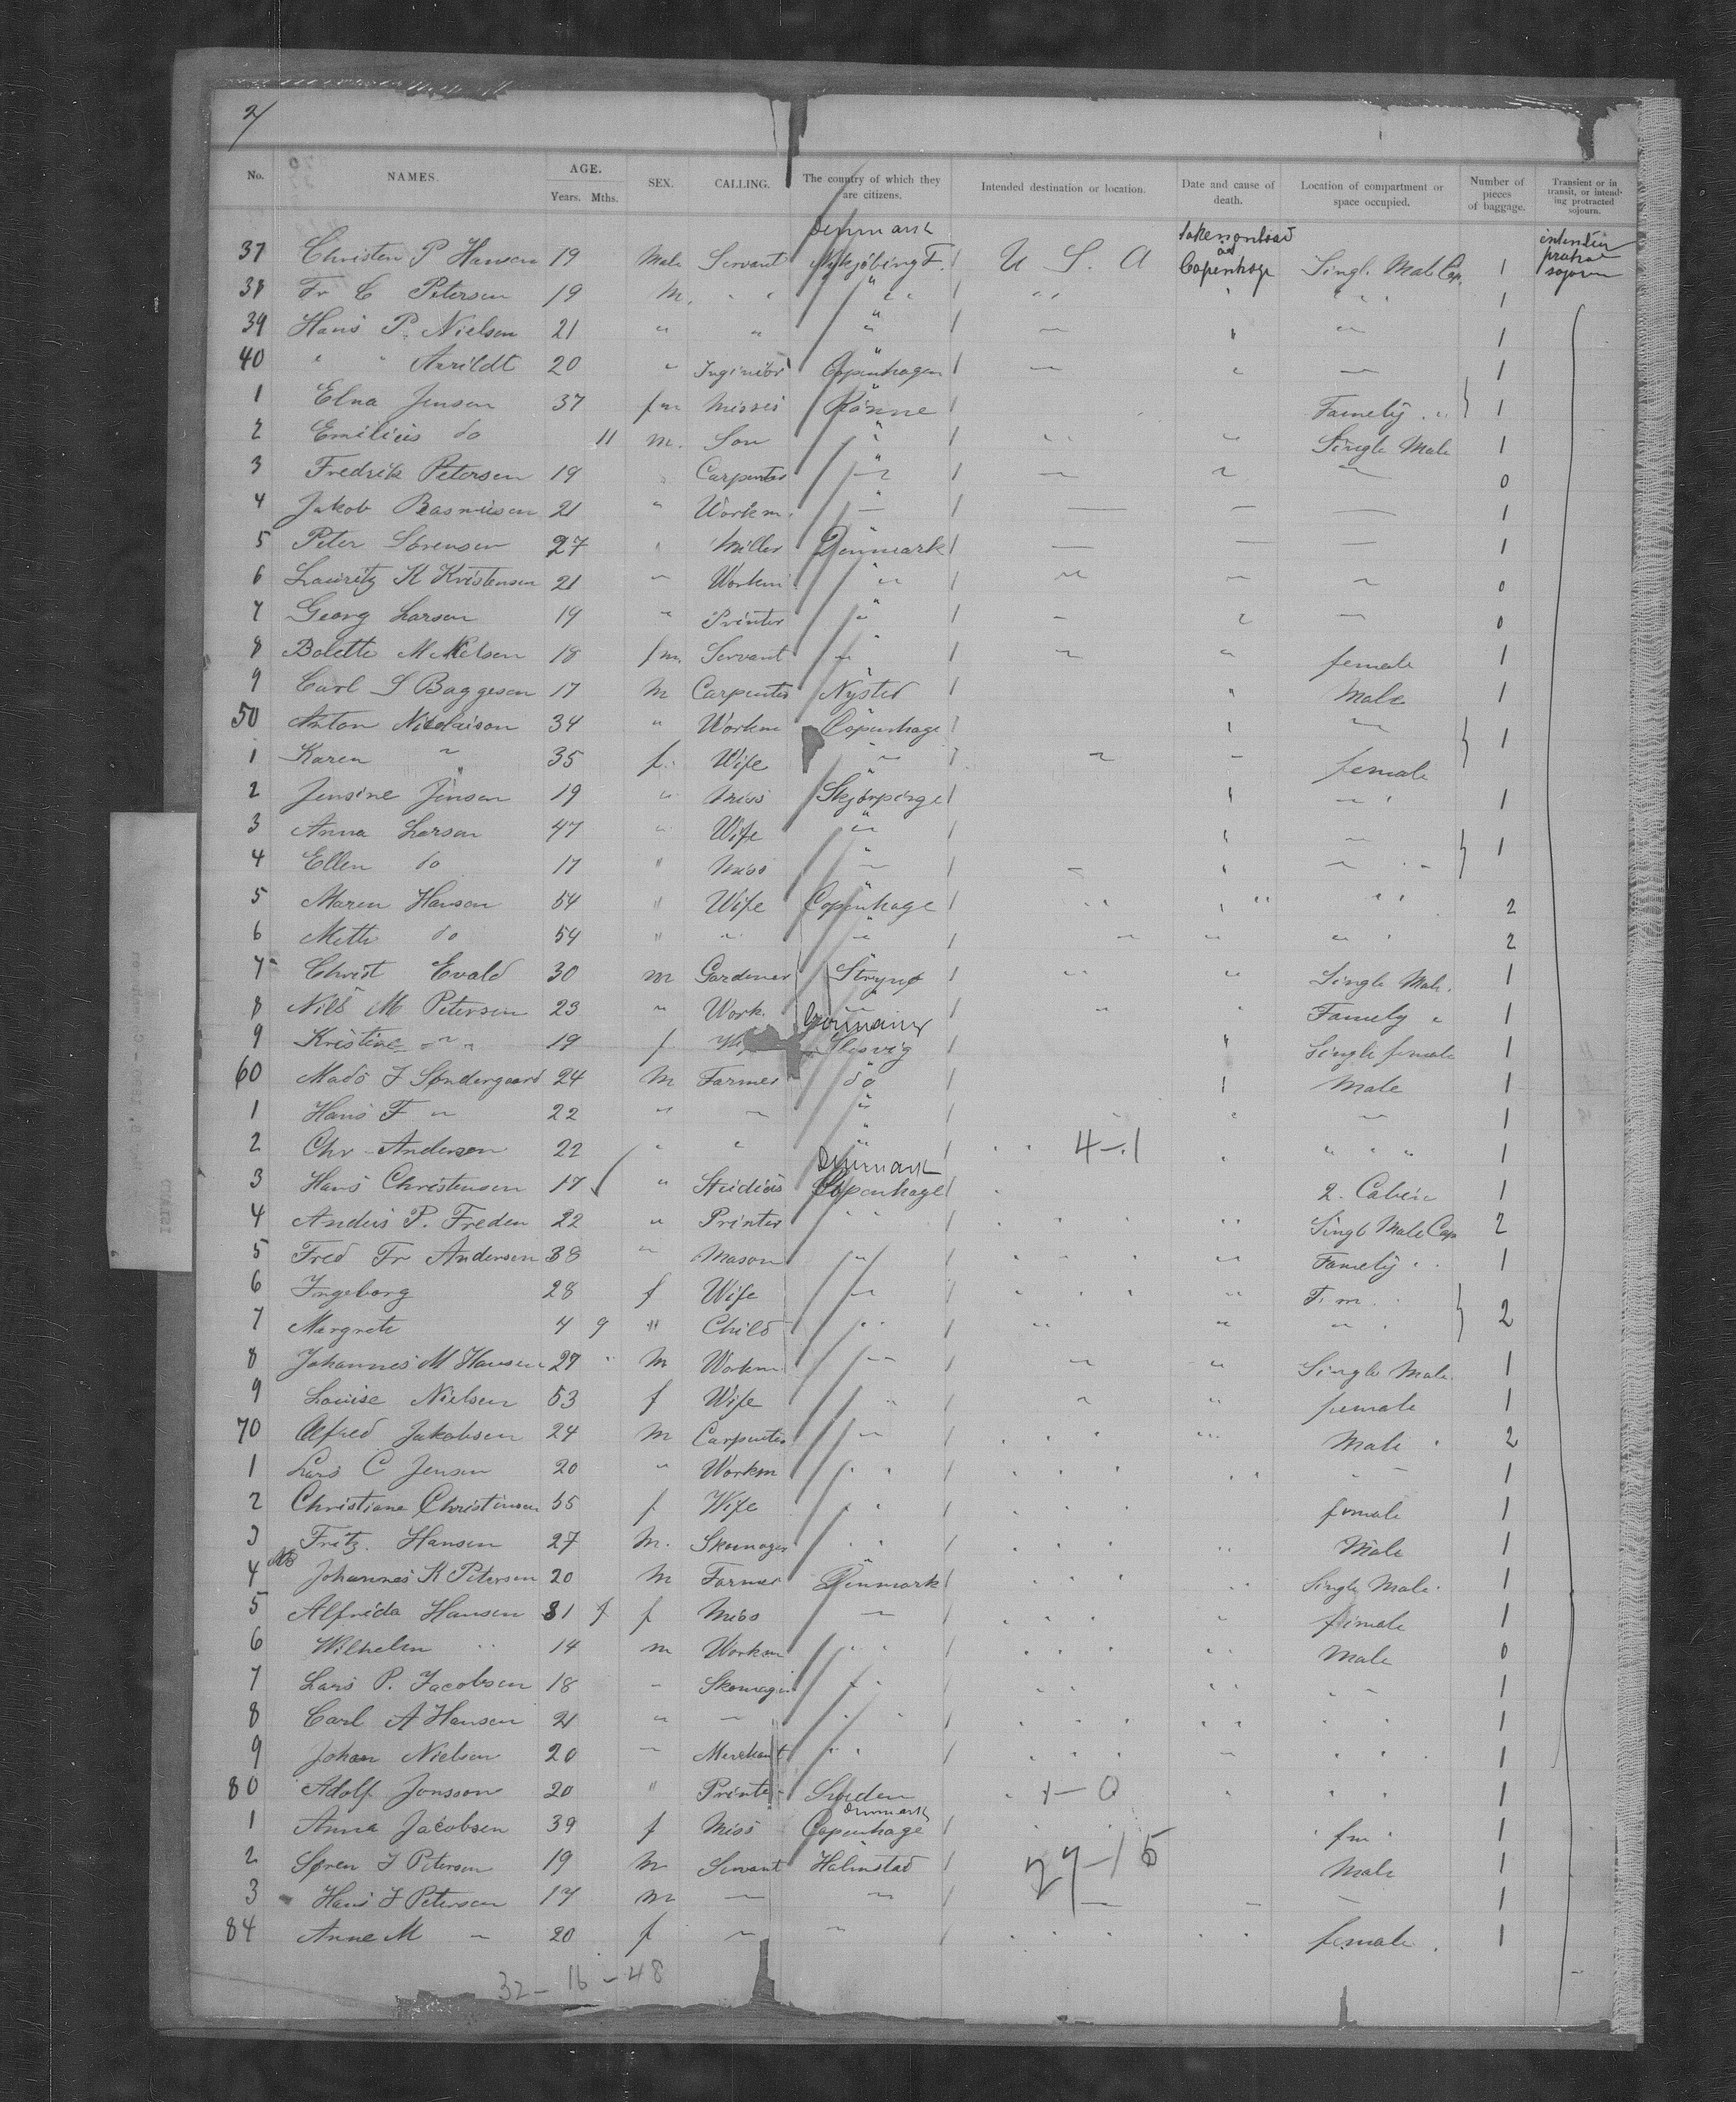 2/
No. NAMES. AGE. Years. Mths. SEX. CALLING. The country of which they are citizens. Intended destination or location. Date and cause of death. Location of compartment or space occupied. Number of pieces of baggage. Transient or in transit, or intending protracted sojourn.
Denmark
37 Christen P Hansen 19 Male Servant Nykjöbing F. U S. A Copenhage Singl. Male Cop. 1
38 Fr C Petersen 19 M. " " " " 1
39 Hans P. Nielsen 21 " " " 1
40 " " Arildt 20 " Inginiör Copenhagen 1
1 Elna Jensen 37 fm Missis Rönne Famely " 1
2 Emilius do 11 m. Son " Single Male 1
3 Fredrik Petersen 19 Carpenter " 0
4 Jakob Rasmusen 21 " Workm. " 1
5 Peter Sörensen 27 " Miller Denmark 1
6 Lauritz K Kristensen 21 " Workm " 0
7 Georg Larsen 19 " Printer " 0
8 Bolette M Nielsen 18 fm. Servant " female 1
9 Carl S Baggesen 17 M Carpenter Nysted Male 1
50 Anton Nicolaison 34 " Workm Copenhage " 1
1 Karen " 35 f. Wife " female
2 Jensine Jensen 19 " Miss Skjörpinge " 1
3 Anna Larsen 47 " Wife " 1
4 Ellen do 17 " Miss "
5 Maren Hansen 54 " Wife Copenhage " 2
6 Mette do 54 " " " 2
7 Christ Evald 30 m Gardener Strynø " Single Male. 1
8 Nils M Petersen 23 " Work. " Famely " 1
Germany
9 Kristine " " 19 f Slesvig Single female 1
60 Mads J Søndergaard 24 M Farmer do Male 1
1 Hans F " 22 " " " 1
2 Chr. Andersen 22 " " " 4-1 " 1
Denmark
3 Hans Christensen 17 " Studius Copenhage 2. Cabin 1
4 Anders P. Freden 22 " Printer " Singl Male Cop 2
5 Fred Fr Andersen 38 " Mason " Famely " 1
6 Ingeborg 28 f Wife " F. m. 2
7 Margrete 4 9 " Child "
8 Johannes M Hansen 27 M Workm " Single Male. 1
9 Louise Nielsen 53 f Wife " female 1
70 Alfred Jakobsen 24 M Carpenter " Male 2
1 Lars C Jensen 20 " Workm " 1
2 Christiane Christensen 55 f Wife " female 1
3 Fritz. Hansen 27 M. Skomager " Male 1
4 Johannes K Petersen 20 M Farmer Denmark Single Male. 1
5 Alfrida Hansen 31 f Miss " female 1
6 Wilhelm " 14 m Workm " Male 0
7 Lars P. Jacobsen 18 " Skomager " 1
8 Carl A Hansen 21 " " " 1
9 Johan Nielsen 20 " Merchant " 1
80 Adolf Jonsson 20 " Printer Sweden 1-0 1
Denmark
1 Anna Jacobsen 39 f Miss Copenhage fm 1
2 Søren J Petersen 19 M Servant Halmstad 27-15 Male 1
3 Hans J Petersen 17 m " " 1
84 Anne M " 20 f " " female. 1
32-16-48